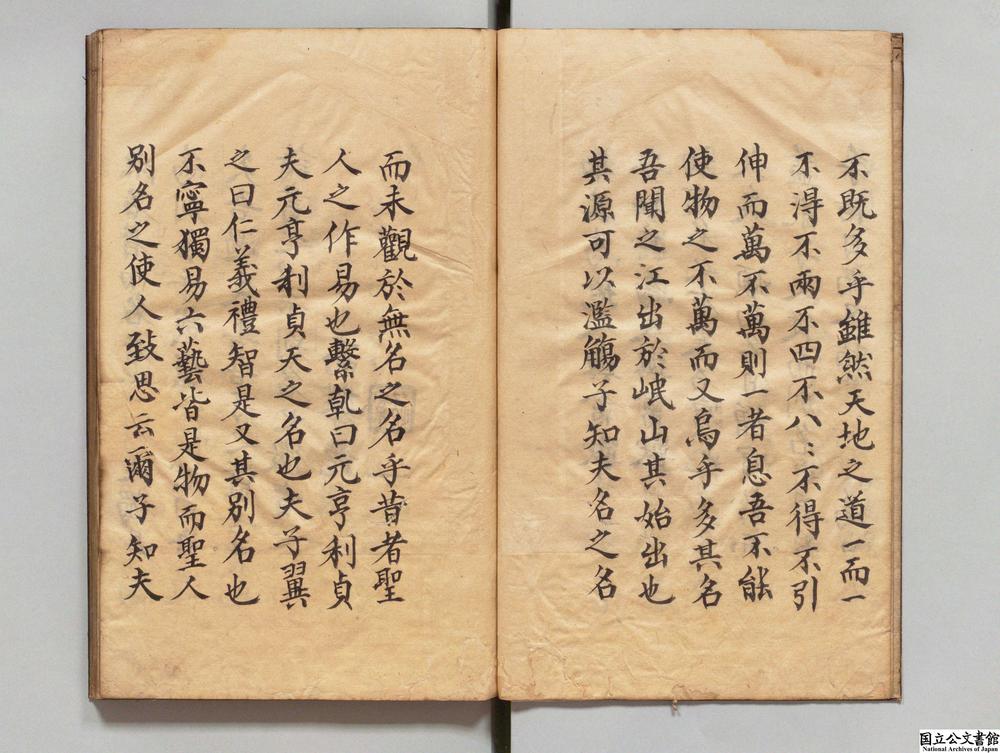 不既多乎雖然天地之道一而一
不得不兩不四不八〻不得不引
伸而萬不萬則一者息吾不能
使物之不萬而又烏乎多其名
吾聞之江出於岷山其始出也
其源可以濫觴子知夫名之名
而未觀於無名之名乎昔者聖
人之作易也繫乾曰元亨利貞
夫元亨利貞天之名也夫子翼
之曰仁義禮智是又其別名也
不寧獨易六藝皆是物而聖人
別名之使人致思云爾子知夫
国立公文書館
National Archives of Japan